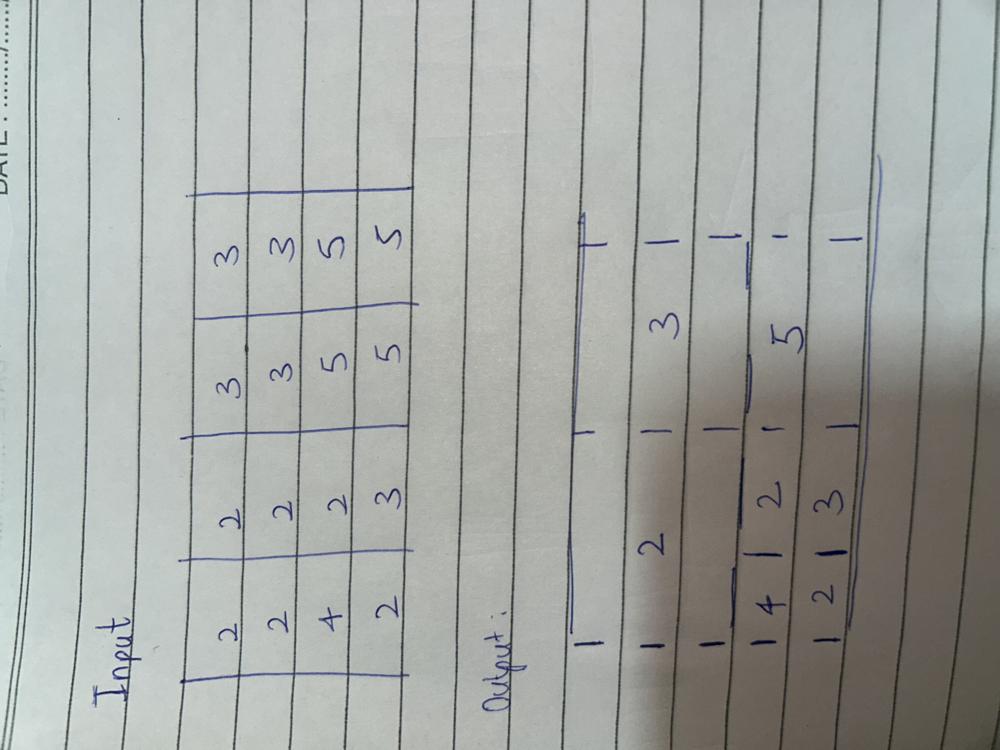 DATE : ......../......
Input
2 2 3 3
2 2 3 3
4 2 5 5
2 3 5 5
Output:
2 3
4 | 2 | 5
2 | 3